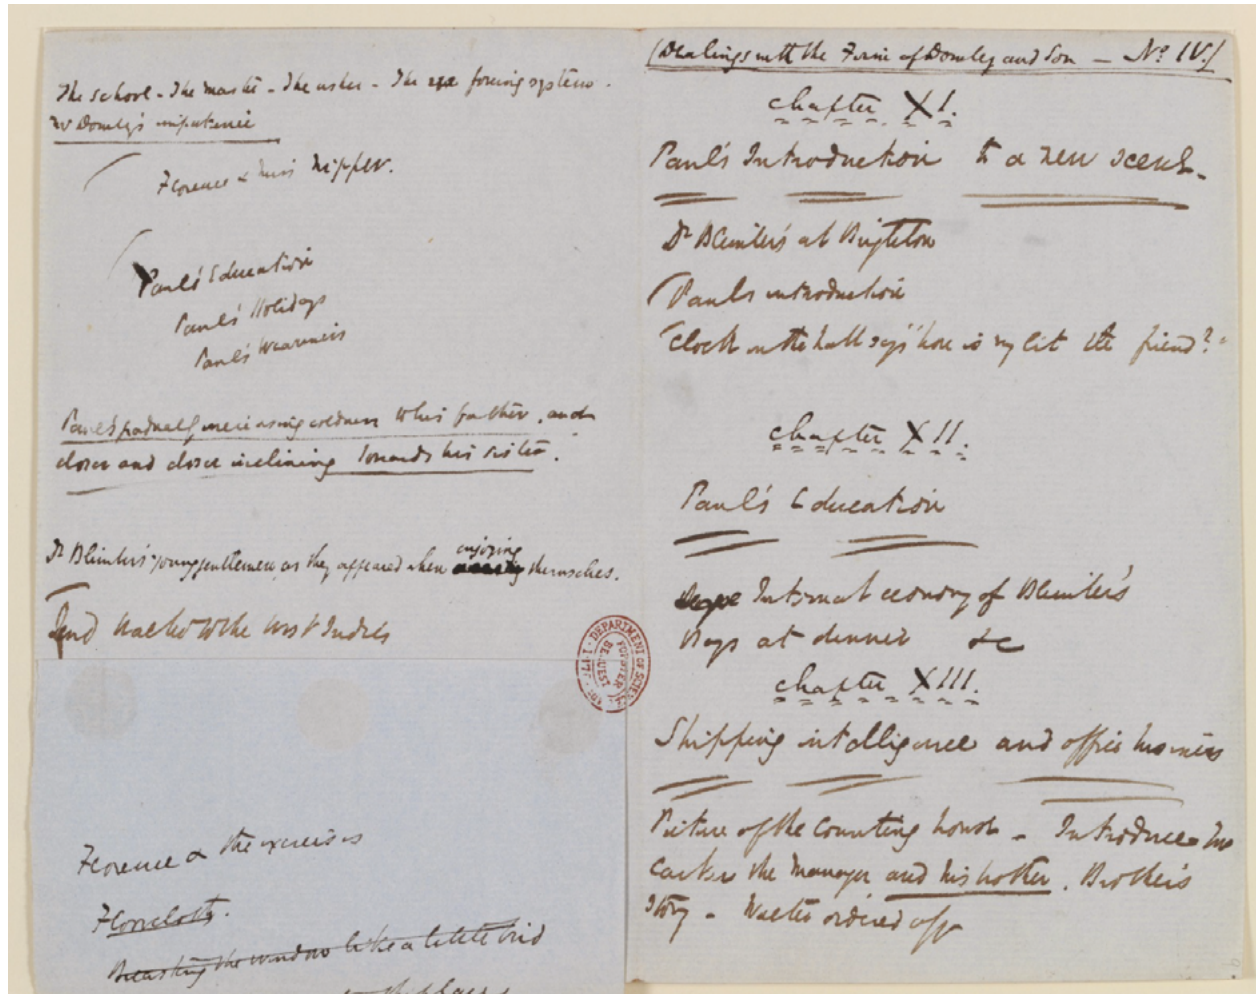 The school - The master - The usher - The forcing system.
Mr Dombey's impatience
Florence & Miss Nipper.
Paul's Education
Paul's Holidays
Paul's Weariness
Paul's gradually increasing coldness to his father, and
closer and closer inclining towards his sister.
Dr Blimber's young gentlemen as they appeared when enjoying themselves.
Send Walter to the West Indies
Florence & the exercises
Breaking the window like a little bird
(Dealings with the Firm of Dombey and Son — No. IV.)
chapter XI.
Paul's Introduction to a new scene.
Dr Blimber's at Brighton
Paul's introduction
Clock in the hall says "how is my lit tle friend?"
chapter XII.
Paul's Education
Internal economy of Blimber's
Boys at dinner &c
chapter XIII.
Shipping intelligence and office business
Picture of the Counting house - Introduce Mr
Carker the Manager and his brother. Brother's
Story - Walter ordered off
DEPARTMENT OF SCIENCE
FORSTER
BEQUEST